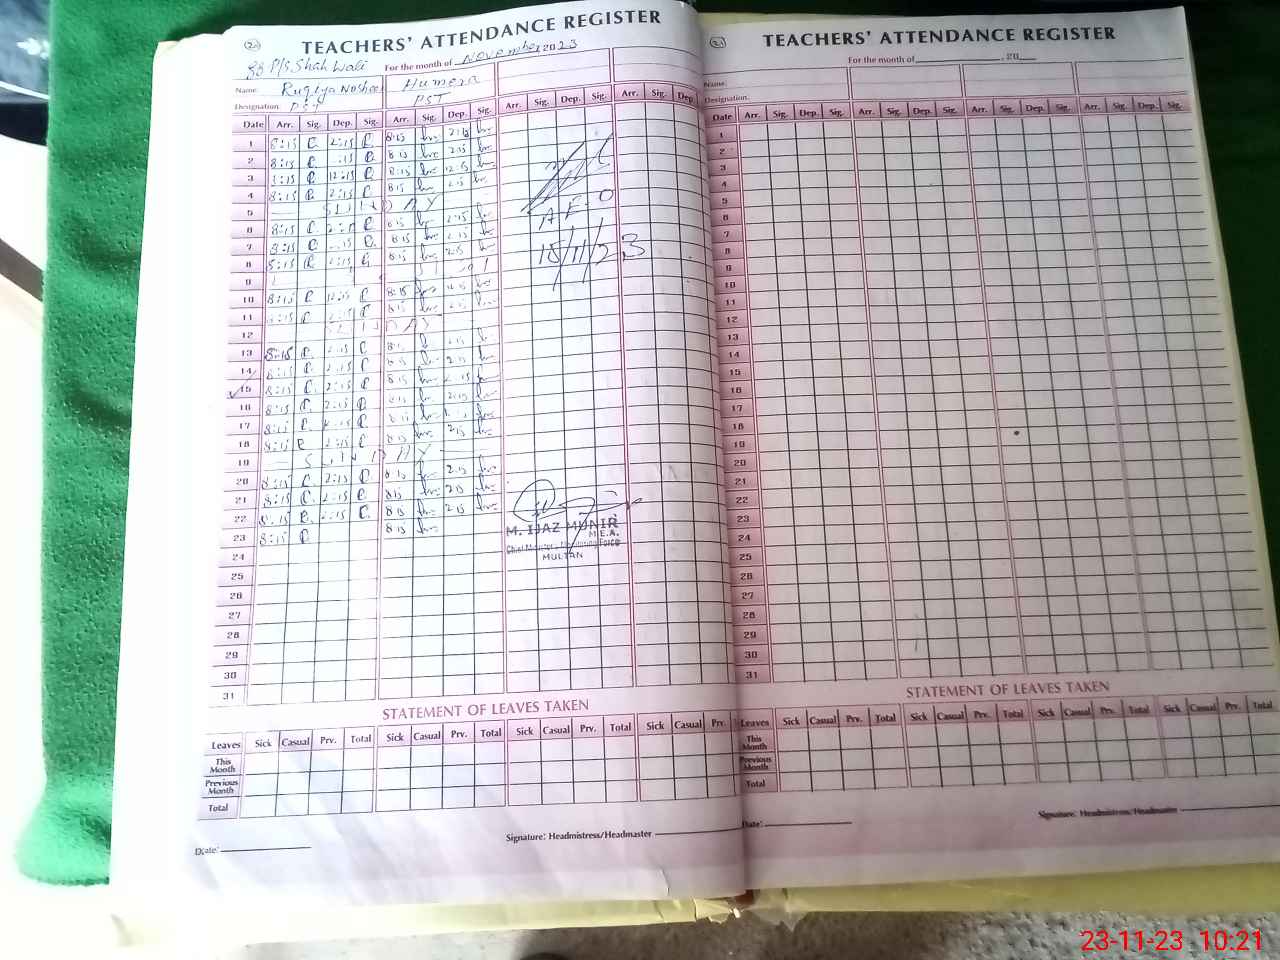 20
TEACHERS' ATTENDANCE REGISTER
P/S Shah Wali For the month of November 2023
Name: Ruqiya Humera
Designation. PST PST
Date Arr. Sig. Dep. Sig. Arr. Sig. Dep. Sig. Arr. Sig. Dep. Sig. Arr. Sig. Dep.
1 8:15 2:15 8:15 2:15
2 8:15 8:15 2:15
3 8:15 12:15 8:15 12:15
4 8:15 2:15 8:15 2:15
5 SUNDAY
6 8:15 8:15 2:15
7 8:15 8:15 2:15
8 8:15 2:15 8:15 2:15
9
10 8:15 12:15 8:15
11 8:15 2:15 8:15 2:15
12 SUNDAY
13 8:15 2:15
14 8:15 2:15 8:15 2:15
15 8:15 2:15 8:15 2:15
16 8:15 2:15 8:15 2:15
17 8:15 8:15
18 8:15 2:15 8:15 2:15
19 SUNDAY
20 8:15 2:15 8:15 2:15
21 8:15 2:15 8:15 2:15
22 8:15 2:15 8:15 2:15
23 8:15 8:15
24
25
26
27
28
29
30
31
A E O
15/11/23
M. IJAZ MUNIR
M.E.A.
Chief Minister's Monitoring Force
MULTAN
STATEMENT OF LEAVES TAKEN
Leaves Sick Casual Prv. Total Sick Casual Prv. Total Sick Casual Prv. Total Sick Casual Prv.
This Month
Previous Month
Total
Signature: Headmistress/Headmaster
Date:
21
TEACHERS' ATTENDANCE REGISTER
For the month of , 20
Name:
Designation.
Date Arr. Sig. Dep. Sig. Arr. Sig. Dep. Sig. Arr. Sig. Dep. Sig. Arr. Sig. Dep. Sig.
1
2
3
4
5
6
7
8
9
10
11
12
13
14
15
16
17
18
19
20
21
22
23
24
25
26
27
28
29
30
31
STATEMENT OF LEAVES TAKEN
Leaves Sick Casual Prv. Total Sick Casual Prv. Total Sick Casual Prv. Total Sick Casual Prv. Total
This Month
Previous Month
Total
Signature: Headmistress/Headmaster
Date:
23-11-23 10:21